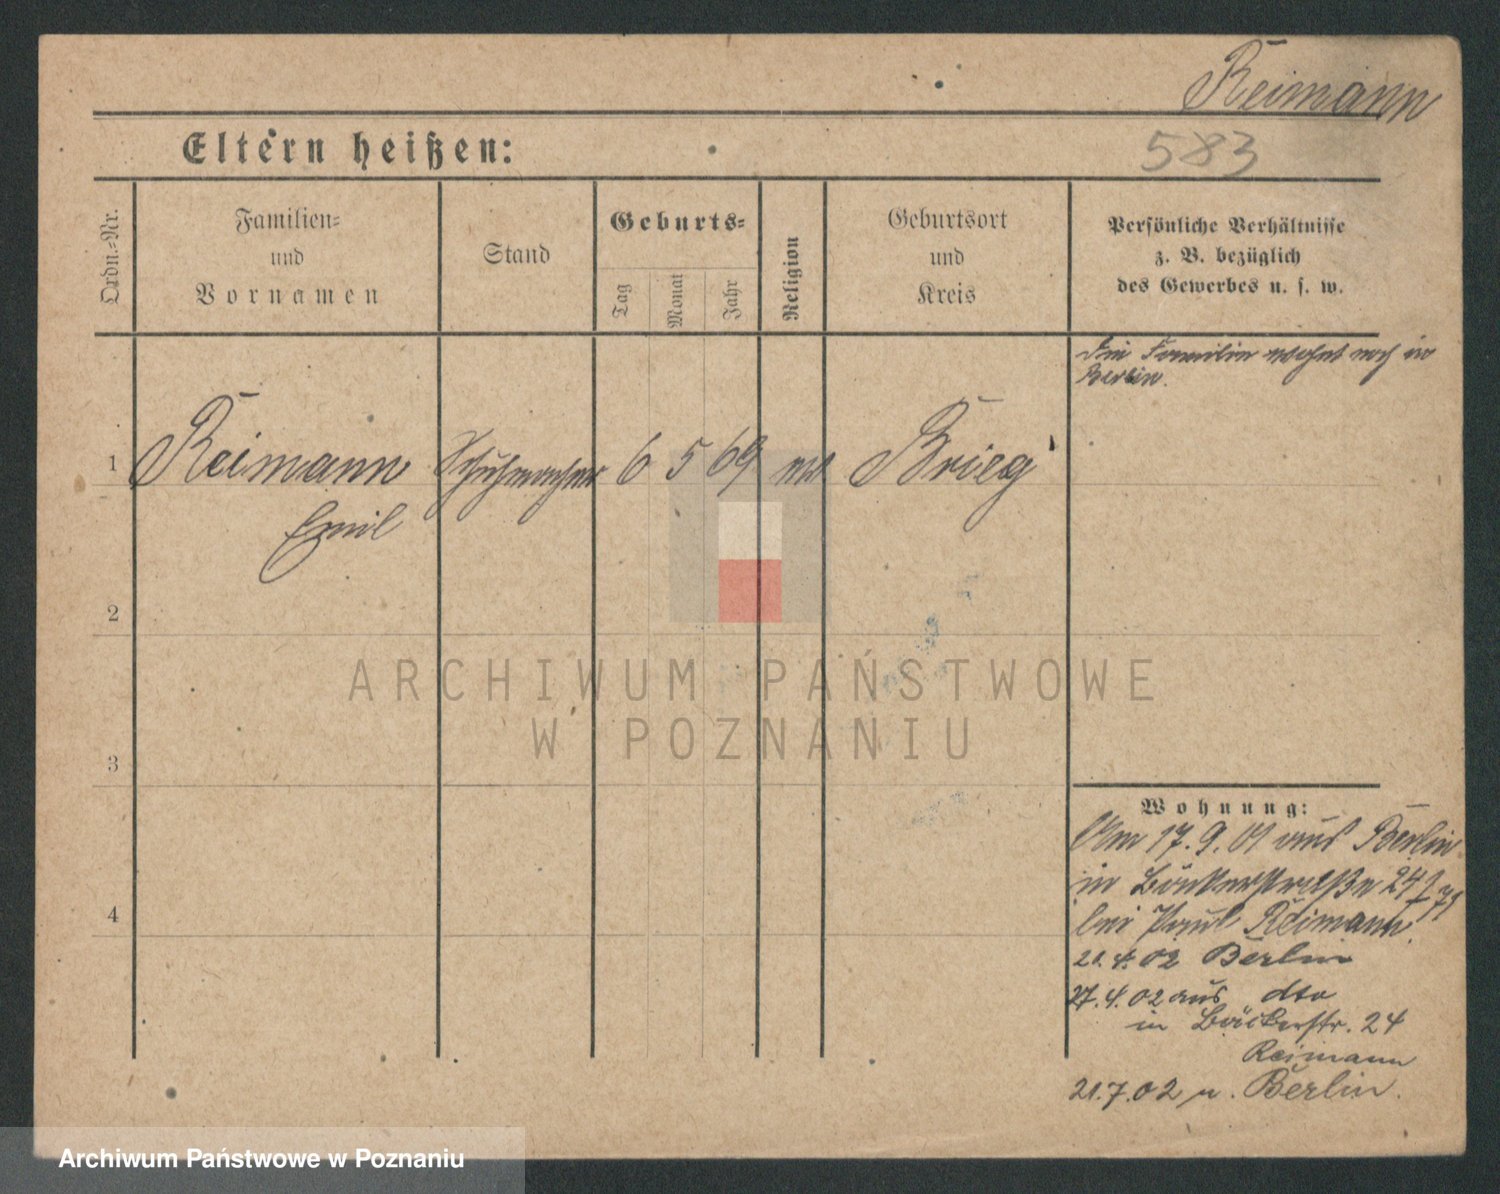 Reimann
583
Eltern heißen:
Ordn.=Nr.
Familien=
und
Vornamen
Stand
Geburts=
Tag
Monat
Jahr
Religion
Geburtsort
und
Kreis
Persönliche Verhältnisse
z. B. bezüglich
des Gewerbes u. s. w.
Die Familie wohnt noch in
Berlin.
1
Reimann
Emil
Schuhmacher
6 5 69
Brieg
2
ARCHIWUM PAŃSTWOWE
W POZNANIU
3
4
Wohnung:
Am 17.9.01 aus Berlin
in Bäckerstraße 24
bei Paul Reimann.
21.4.02 Berlin
27.4.02 aus dto
in Bäckerstr. 24
Reimann
21.7.02 n. Berlin.
Archiwum Państwowe w Poznaniu